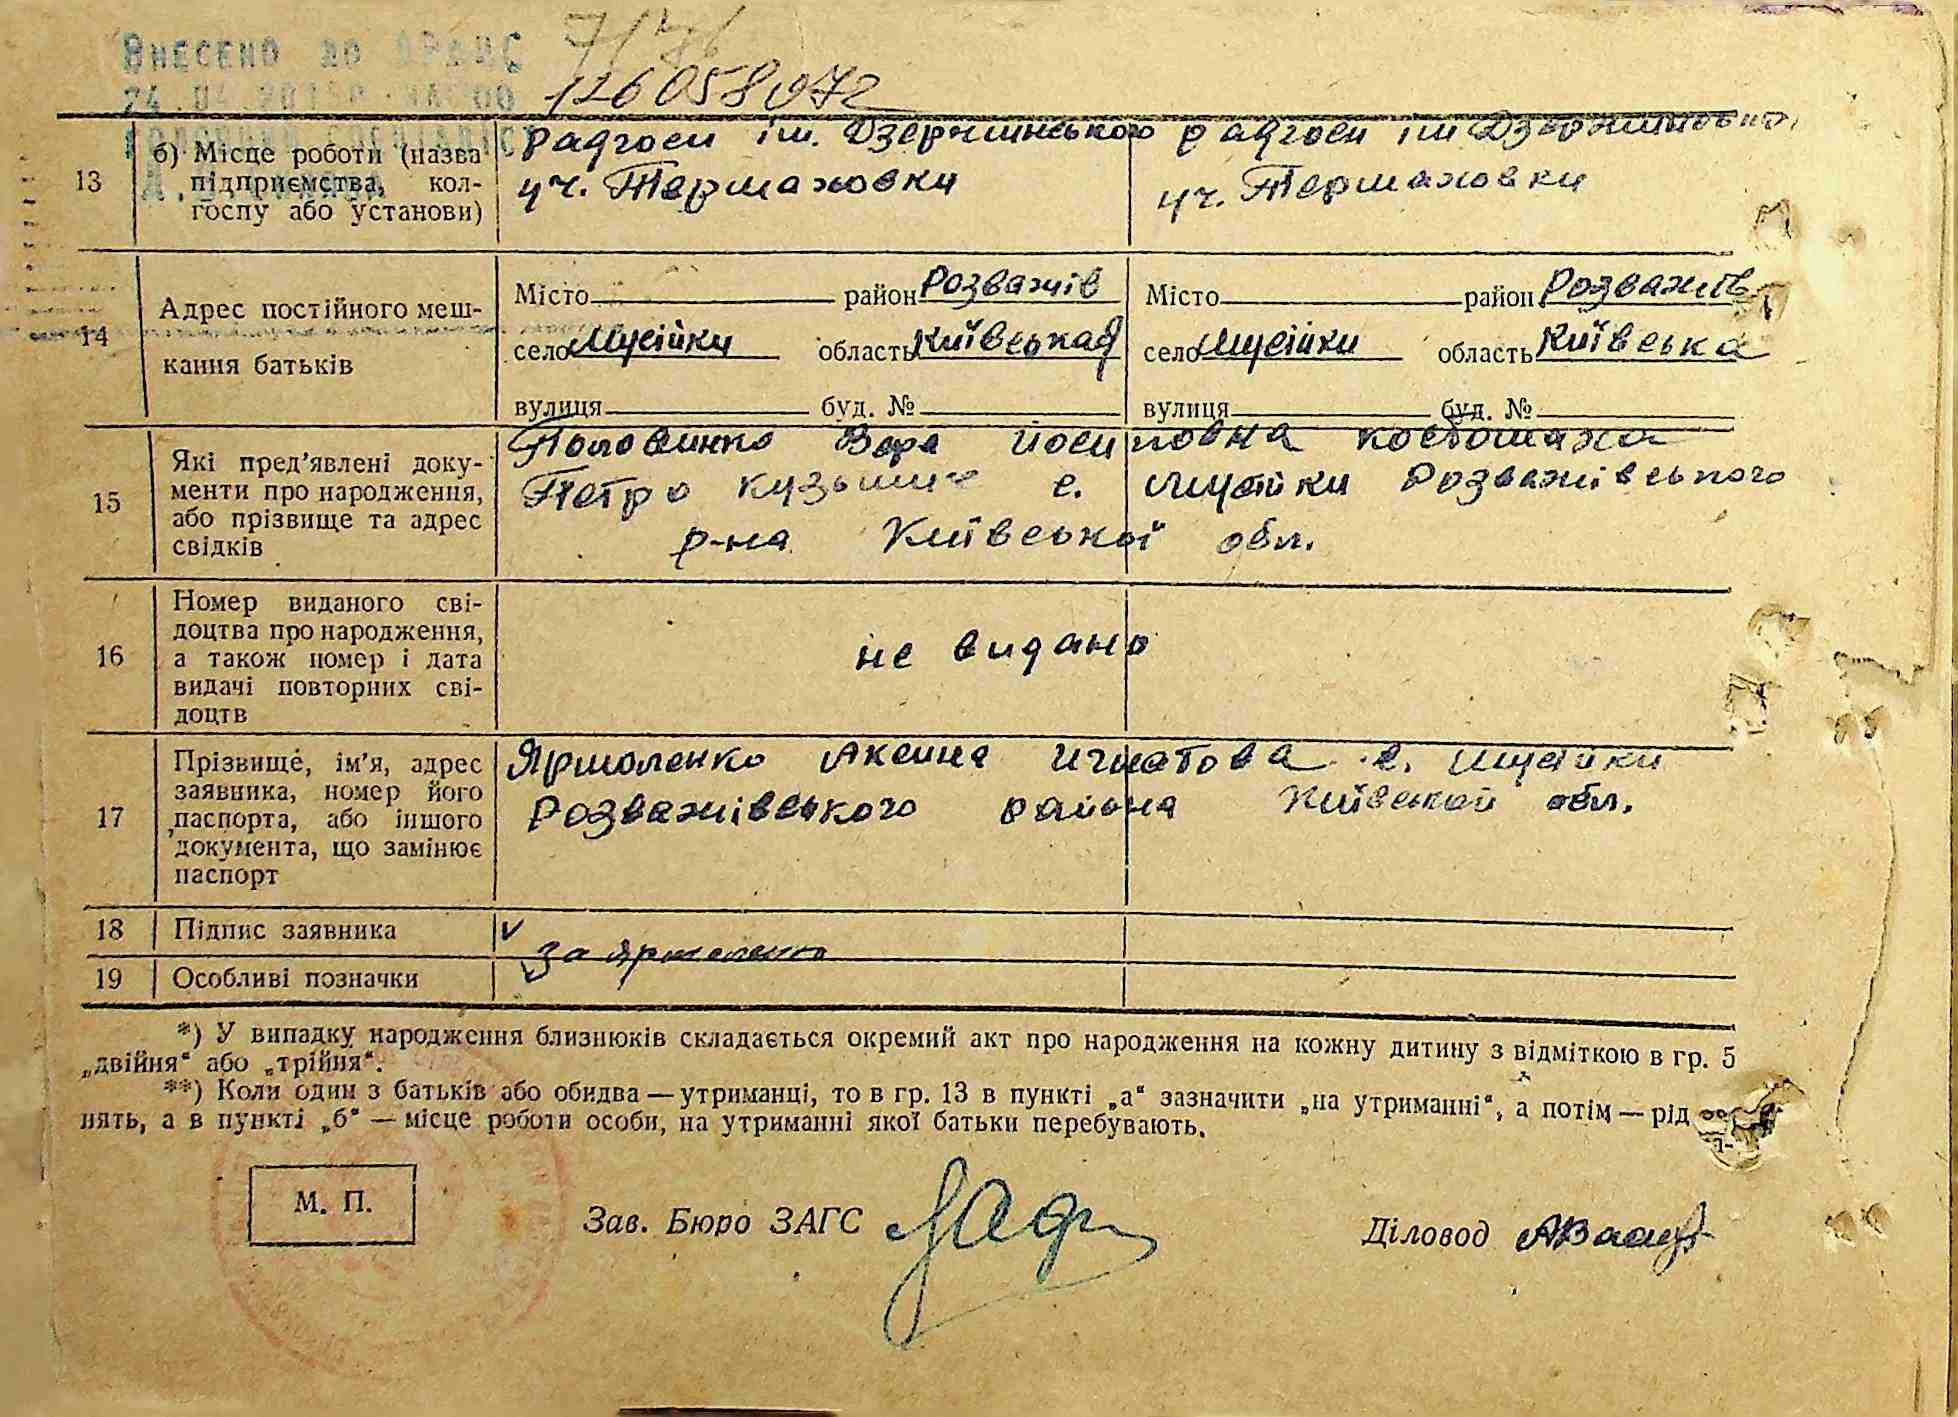 Внесено до
7/76
126058972
13
б) Місце роботи (назва підприємства, кол-
госпу або установи)
Радгосп ім. Дзержинського
уч. Термаховки
радгосп ім Дзержинського
уч. Термаховки
14
Адрес постійного меш-
кання батьків
Місто район Розважів
село Мусійки область Київська
вулиця буд. №
Місто район Розважів
село Мусійки область Київська
вулиця буд. №
15
Які пред'явлені доку-
менти про народження,
або прізвище та адрес
свідків
Половинко Вера Йосиповна
Петро Кузьмич с. Мусійки Розважівського
р-на Київської обл.
16
Номер виданого сві-
доцтва про народження,
а також номер і дата
видачі повторних сві-
доцтв
не видано
17
Прізвище, ім'я, адрес
заявника, номер його
паспорта, або іншого
документа, що замінює
паспорт
Ярмоленко Аксиня Игнатова с. Мусійки
Розважівського района Київської обл.
18
Підпис заявника
За Ярмоленко
19
Особливі позначки
*) У випадку народження близнюків складається окремий акт про народження на кожну дитину з відміткою в гр. 5
„двійня" або „трійня".
**) Коли один з батьків або обидва — утриманці, то в гр. 13 в пункті „а" зазначити „на утриманні", а потім — рід
нять, а в пункті „б" — місце роботи особи, на утриманні якої батьки перебувають.
М. П.
Зав. Бюро ЗАГС
Діловод